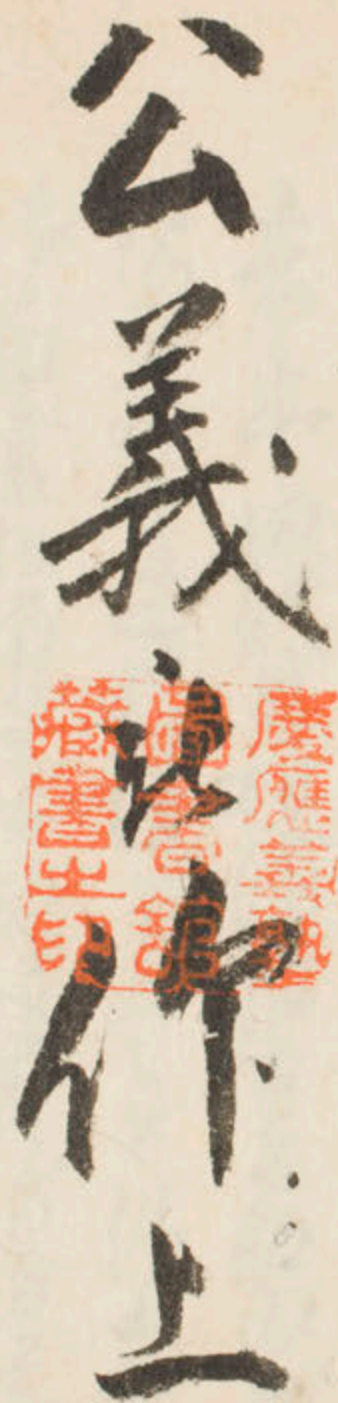 公義 上
慶應義塾
圖書館
藏書之印